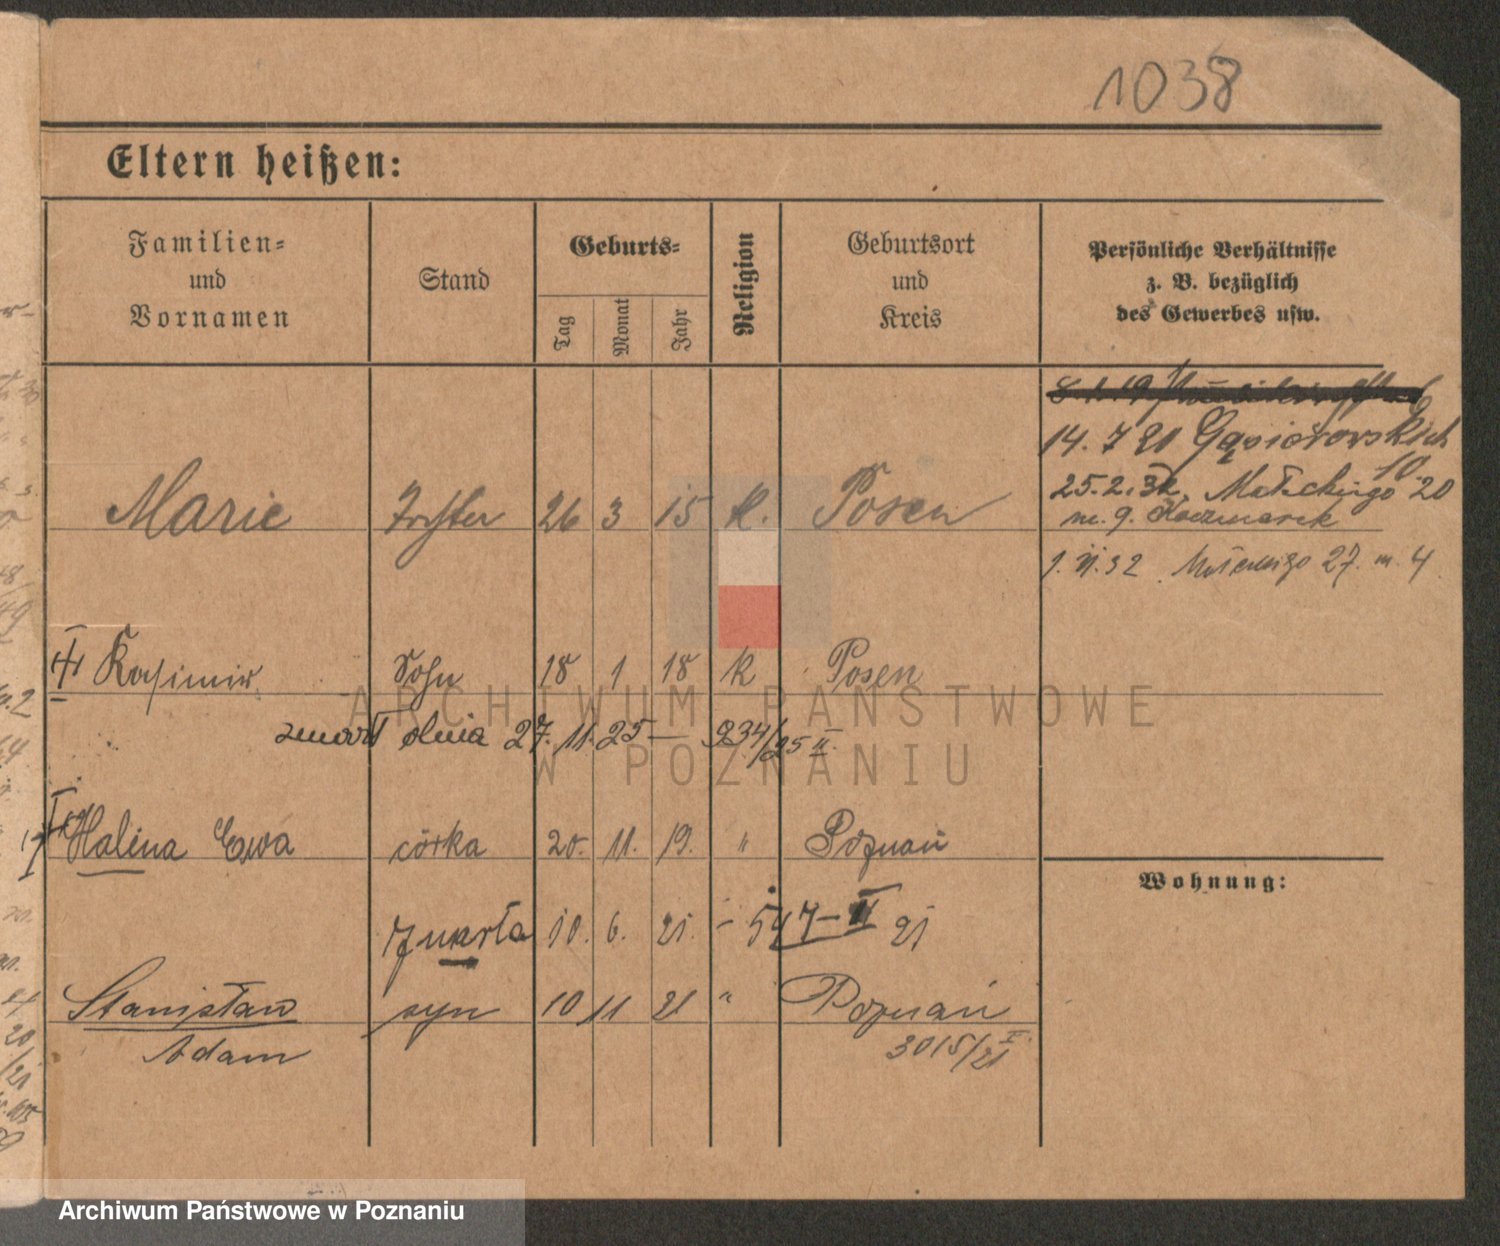 1038
Eltern heißen:
Familien=
und
Vornamen
Stand
Geburts=
Tag
Monat
Jahr
Religion
Geburtsort
und
Kreis
Persönliche Verhältnisse
z. B. bezüglich
des Gewerbes usw.
14. 7 21 Gąsiorowskich
10.
Marie Tochter 26 3 15 k. Posen
25.2.32. Matekiego 20
m. 9. Kaczmarek
1. VI. 32 Matekiego 27. m. 4
Kasimir Sohn 18 1 18 k Posen
zmarł dnia 27. 11. 25 — 934/25 II.
Halina Ewa córka 20. 11. 19. " Poznań
Wohnung:
zmarła 10. 6. 21. - 547-II 21
Stanisław syn 10 11 21 " Poznań
Adam
3015/21 I
ARCHIWUM PAŃSTWOWE
W POZNANIU
Archiwum Państwowe w Poznaniu